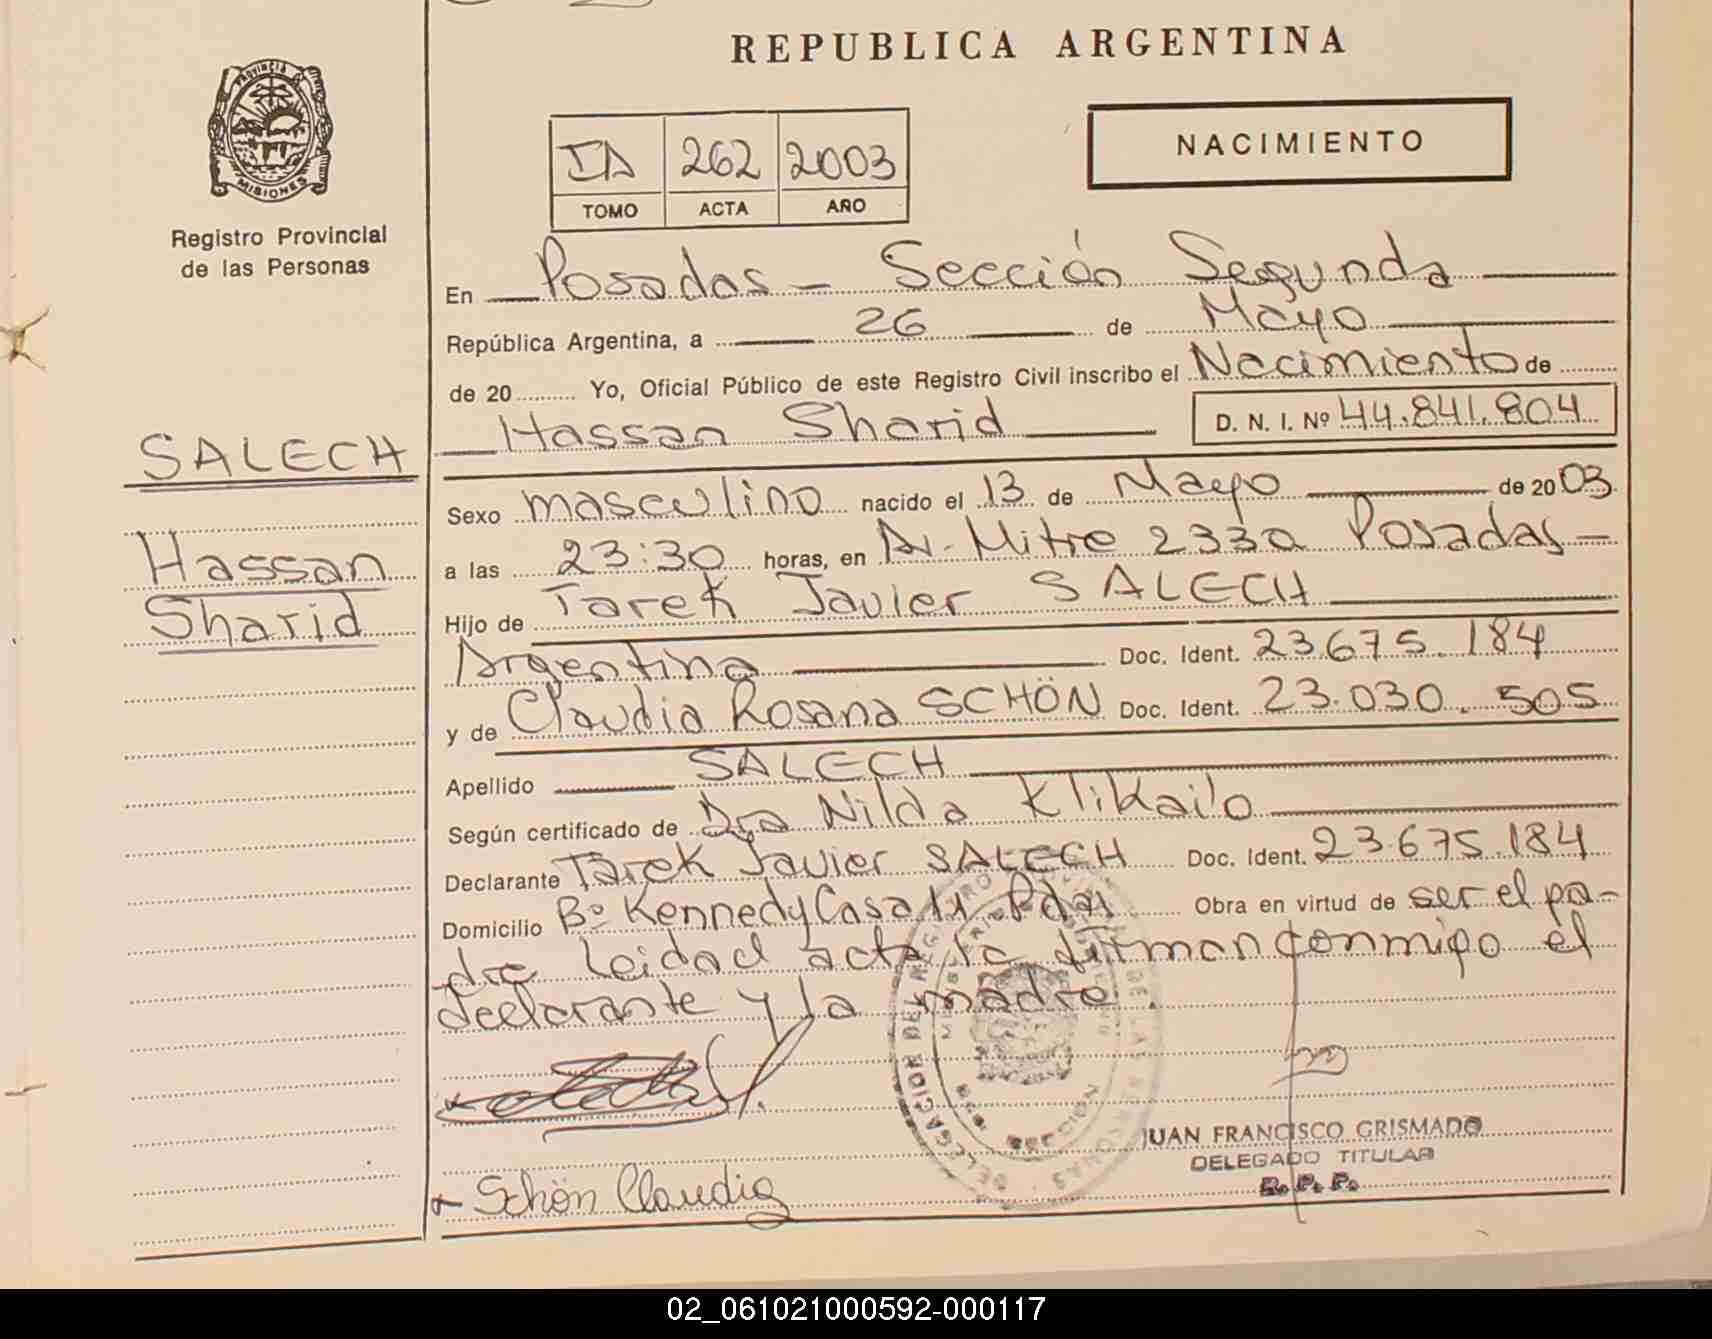 REPUBLICA ARGENTINA
PROVINCIA
MISIONES
Registro Provincial
de las Personas
IA 262 2003
TOMO ACTA AÑO
NACIMIENTO
En Posadas - Sección Segunda
República Argentina, a 26 de Mayo
de 20 Yo, Oficial Público de este Registro Civil inscribo el Nacimiento de
Hassan Sharid D. N. I. Nº 44.841.804
SALECH
Hassan
Sharid
Sexo masculino nacido el 13 de Mayo de 2003
a las 23:30 horas, en Av. Mitre 2330 Posadas -
Hijo de Tarek Javier SALECH
Argentina Doc. Ident. 23.675.184
y de Claudia Rosana SCHÖN Doc. Ident. 23.030.505
Apellido SALECH
Según certificado de Dra Nilda Klikailo
Declarante Tarek Javier SALECH Doc. Ident. 23.675.184
Domicilio Bº Kennedy Casa Pdas Obra en virtud de ser el pa-
dre Leidad acta la firman conmigo el
declarante y la madre.
JUAN FRANCISCO GRISMADO
DELEGADO TITULAR
R. P. P.
Schön Claudia
02_061021000592-000117